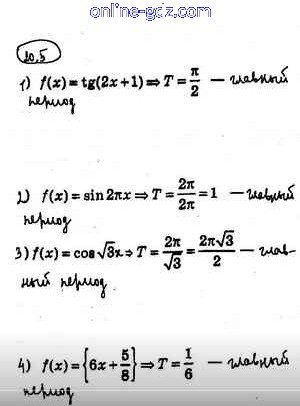 online-gdz.com
20.5
1) f(x) = tg(2x+1) ⇒ T = π/2 — главный
период
2) f(x) = sin 2πx ⇒ T = 2π/2π = 1 — главный
период
3) f(x) = cos √3x ⇒ T = 2π/√3 = 2π√3/2 — глав-
ный период
4) f(x) = {6x + 5/8} ⇒ T = 1/6 — главный
период